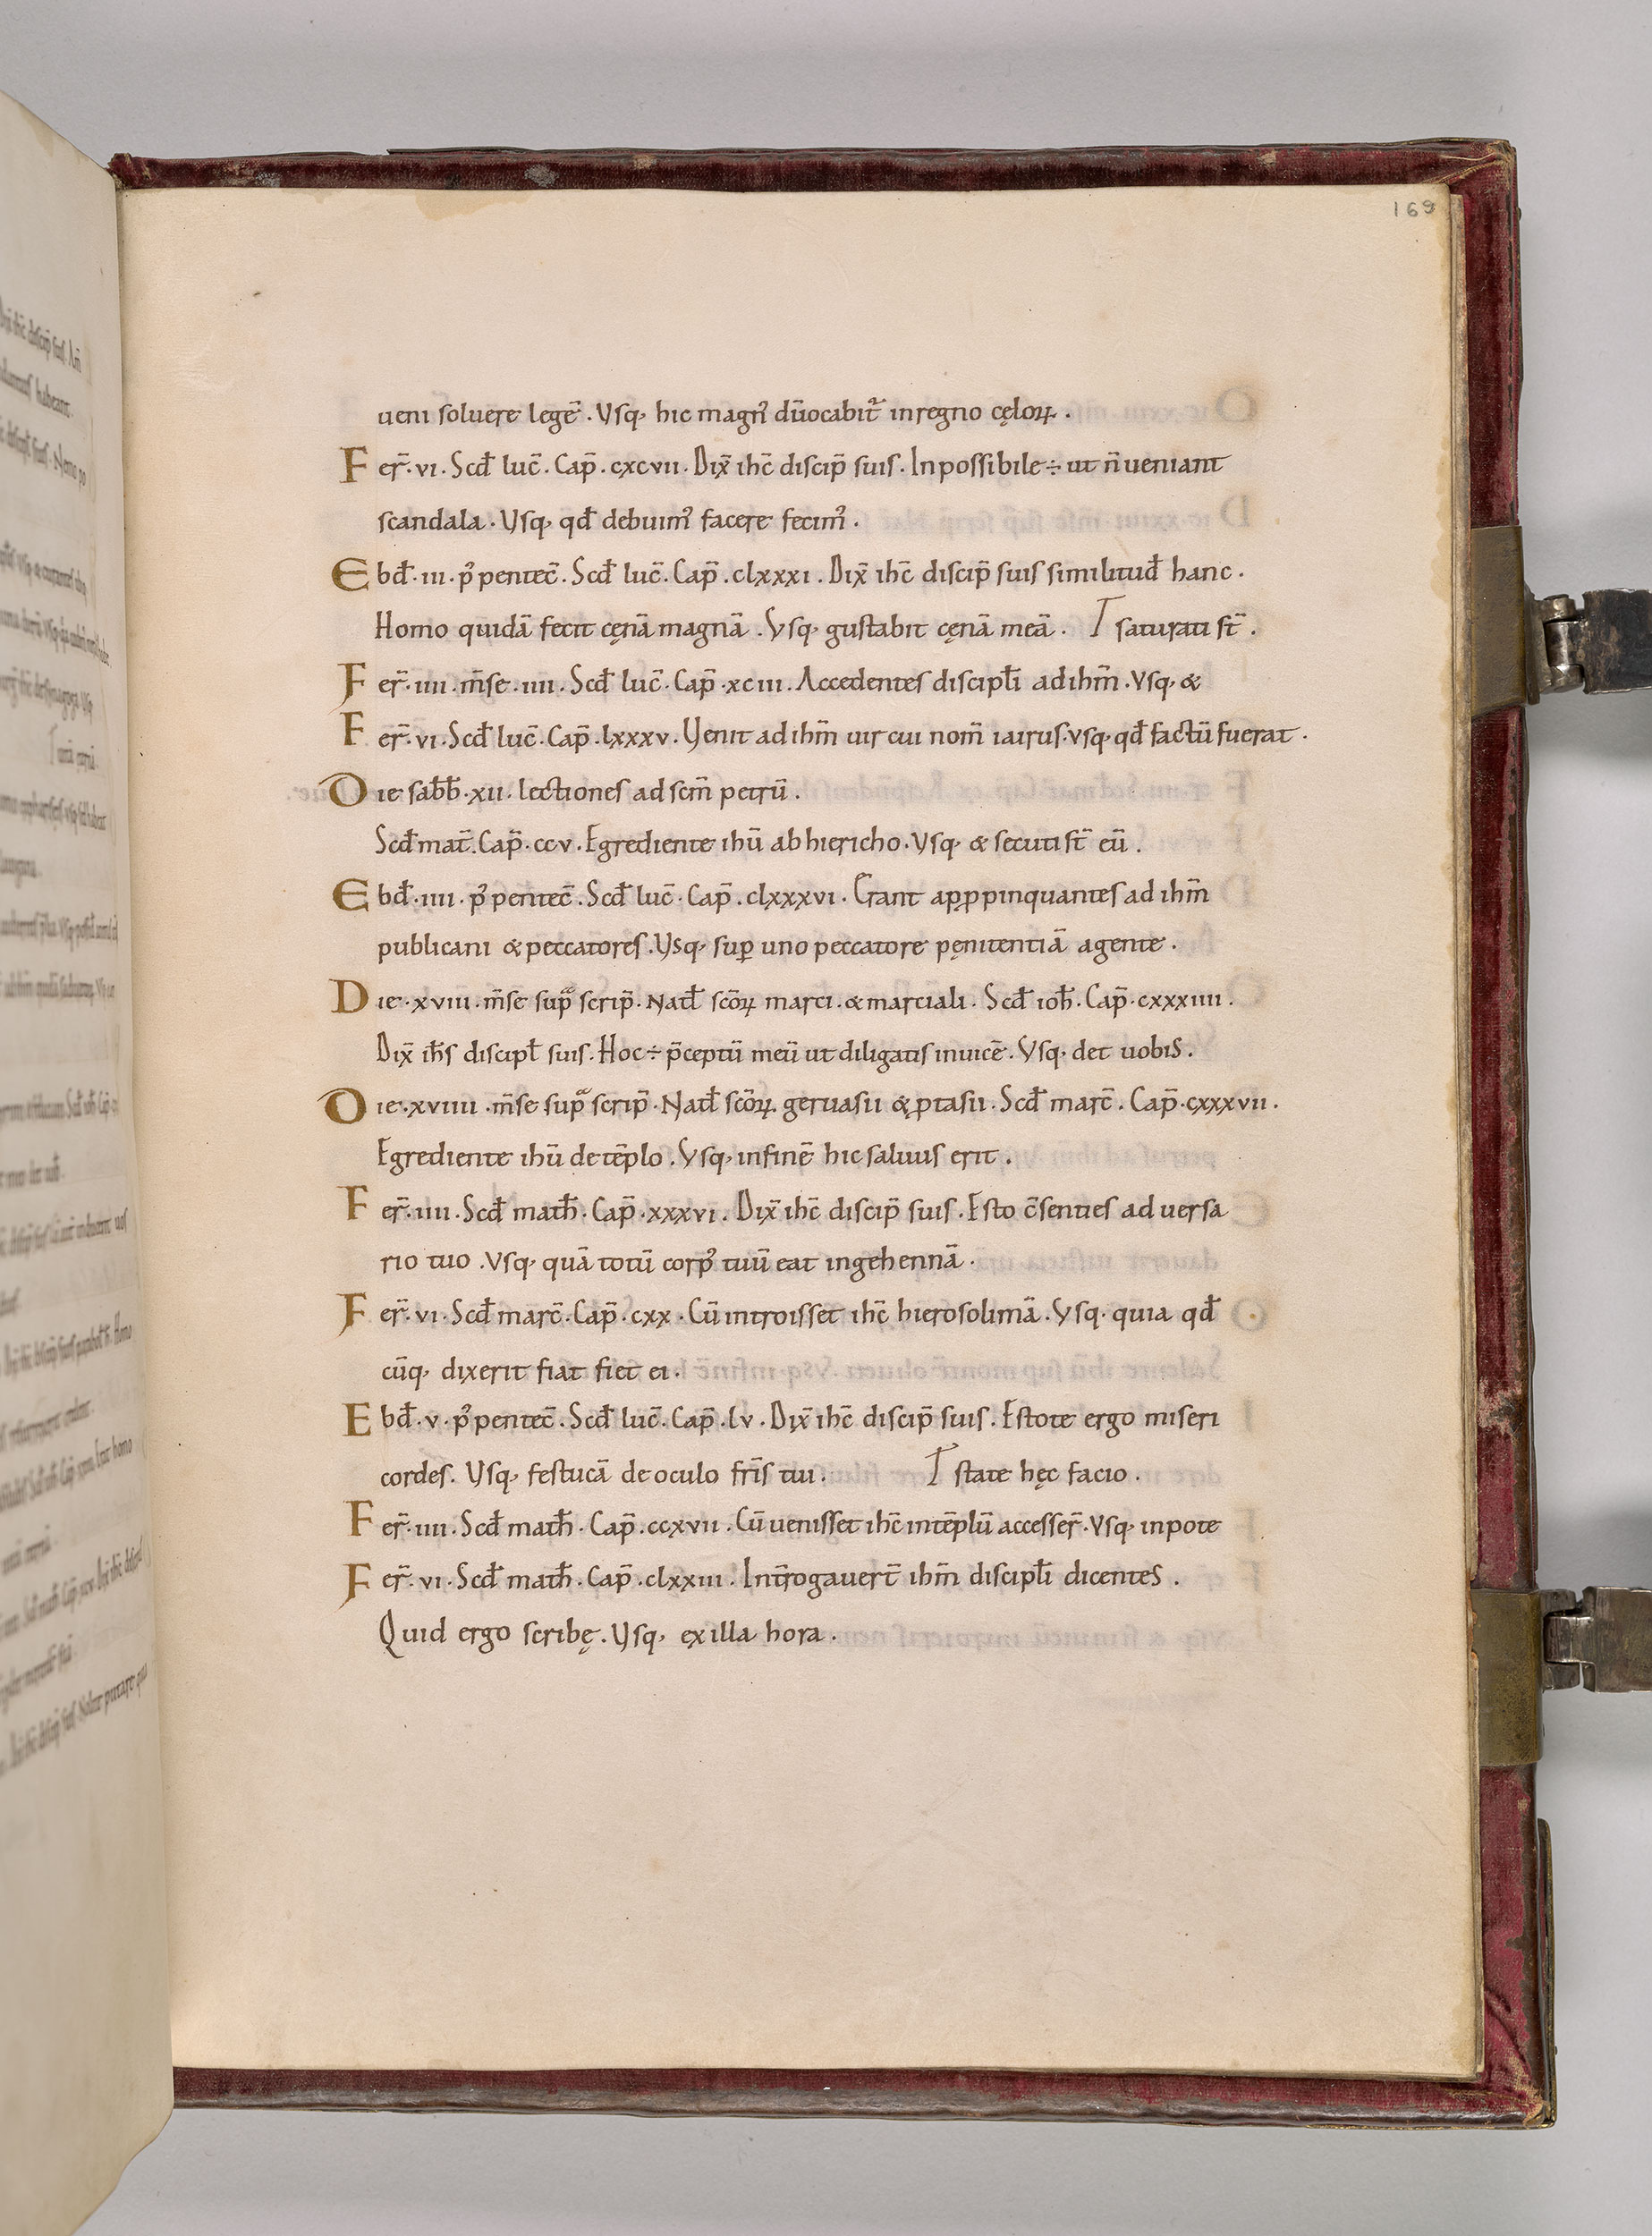 169
ueni soluere legē. Vsq; hic magn᾽ dūocabit̄ inregno cęloꝝ.
Fer̄. vi. Scd̄ luc̄. Cap̄. cxcvii. Dix̄ ihc̄ discip̄ suis. Inpossibile ÷ ut n̄ ueniant
scandala. Vsq; qd̄ debuim᾽ facere fecim᾽.
Ebd̄. iii. p᾽ pentec̄. Scd̄ luc̄. Cap̄. clxxxi. Dix̄ ihc̄ discip̄ suis similitud̄ hanc.
Homo quidā fecit cęnā magnā. Vsq; gustabit cęnā meā. saturati st̄.
Fer̄. iiii. m̄se. iiii. Scd̄ luc̄. Cap̄. xciii. Accedentes discipl̄i ad ihm̄. Vsq; &
Fer̄. vi. Scd̄ luc̄. Cap̄. lxxxv. Venit ad ihm̄ uir cui nom̄ iairus. Vsq; qd̄ factū fuerat.
Die sab̄b̄. xii. lectiones ad scm̄ petrū.
Scd̄ mat̄. Cap̄. ccv. Egrediente ihū ab hiericho. Vsq; & secuti st̄ eū.
Ebd̄. iiii. p᾽ pentec̄. Scd̄ luc̄. Cap̄. clxxxvi. Erant apꝓpinquantes ad ihm̄
publicani & peccatores. Vsq; suꝑ uno peccatore pęnitentiā agente.
Die. xviii. m̄se supͣ scrip̄. Nat̄l scōꝝ marci. & marciali. Scd̄ ioh̄. Cap̄. cxxxiiii.
Dix̄ ih̄s discipl̄ suis. Hoc ÷ p̄ceptū meū ut diligatis inuicē. Vsq; det uobis.
Die. xviiii. m̄se supͣ scrip̄. Nat̄l scōꝝ. geruasii & ꝓtasii. Scd̄ marc̄. Cap̄. cxxxvii.
Egrediente ihū de tēplo. Vsq; infinē hic saluus erit.
Fer̄. iiii. Scd̄ math̄. Cap̄. xxxvi. Dix̄ ihc̄ discip̄ suis. Esto c̄senties aduersa
rio tuo. Vsq; quā totū corp᾽ tuū eat ingehennā.
Fer̄. vi. Scd̄ marc̄. Cap̄. cxx. Cū introisset ihc̄ hierosolimā. Vsq; quia qd̄
cūq; dixerit fiat fiet ei.
Ebd̄. v. p᾽ pentec̄. Scd̄ luc̄. Cap̄. lv. Dix̄ ihc̄ discip̄ suis. Estote ergo miseri
cordes. Vsq; festucā de oculo fr̄is tui. state hęc facio.
Fer̄. iiii. Scd̄ math̄. Cap̄. ccxvii. Cū uenisset ihc̄ intēplū accesser̄. Vsq; inpote
Fer̄. vi. Scd̄ math̄. Cap̄. clxxiii. Int̄rogauert̄ ihm̄ discipl̄i dicentes.
Quid ergo scribę. Vsq; ex illa hora.